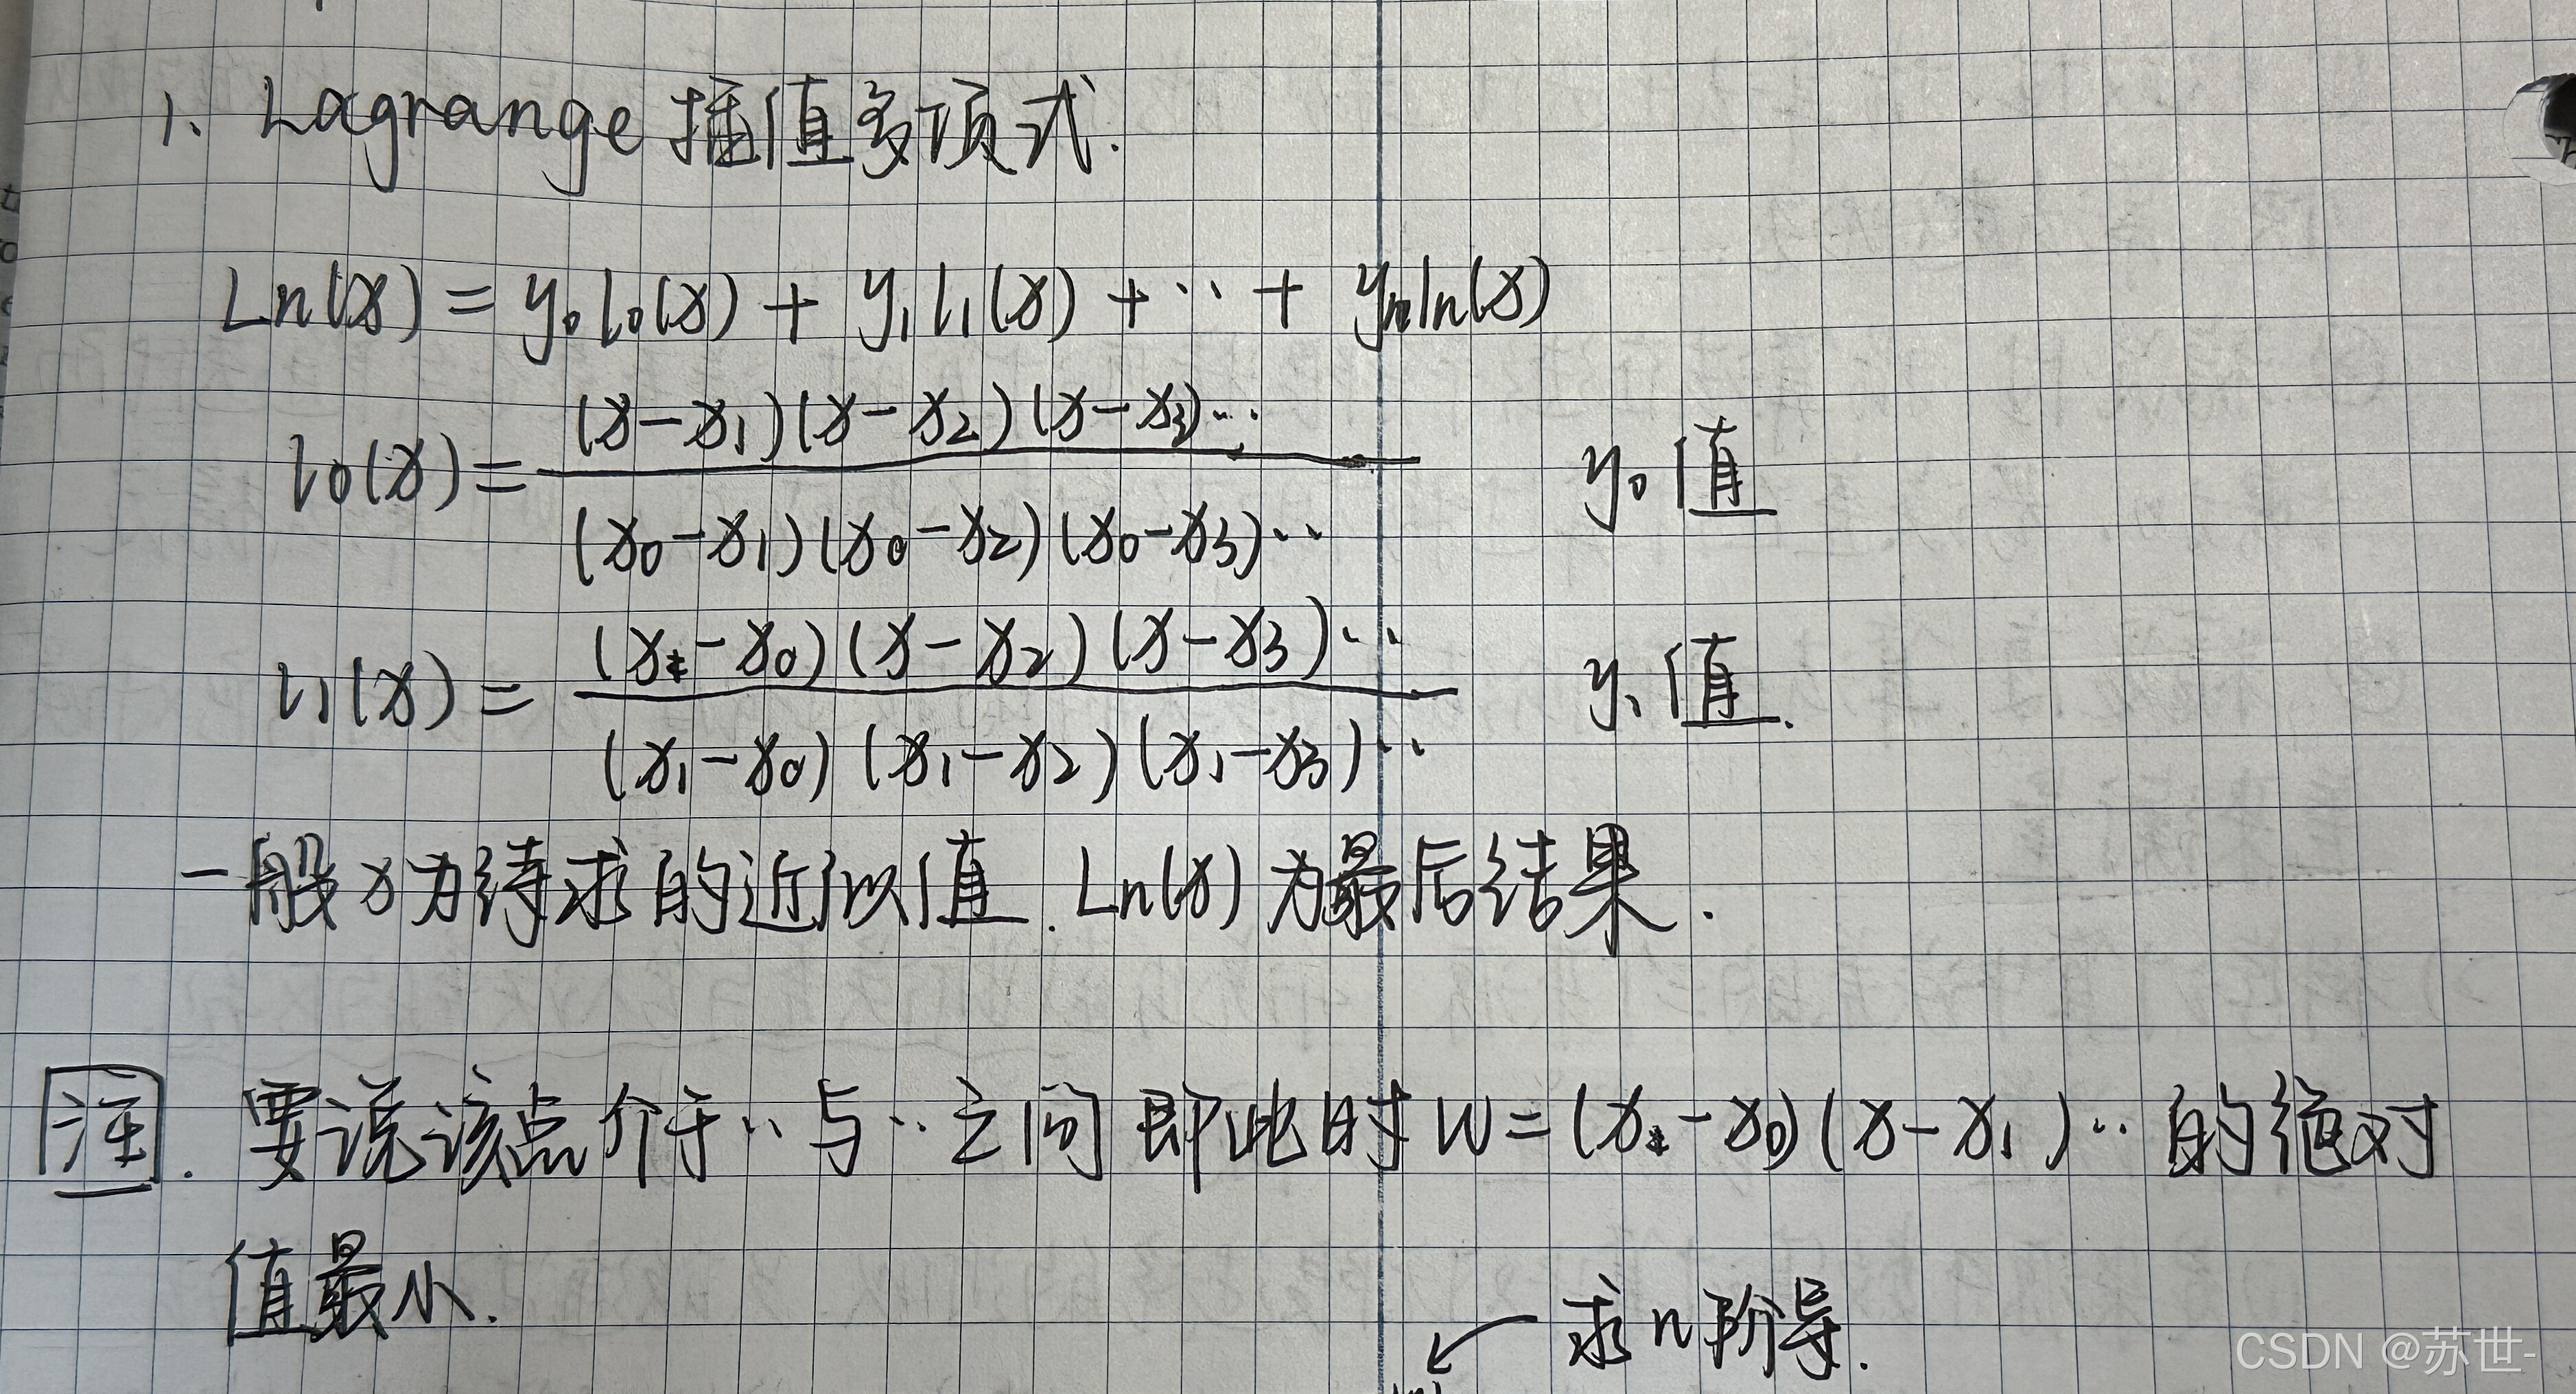 1. Lagrange 插值多项式.
Ln(x) = y₀l₀(x) + y₁l₁(x) + ··· + yₙln(x)
l₀(x) = (x-x₁)(x-x₂)(x-x₃)··· / (x₀-x₁)(x₀-x₂)(x₀-x₃)··· y₀值
l₁(x) = (x-x₀)(x-x₂)(x-x₃)··· / (x₁-x₀)(x₁-x₂)(x₁-x₃)··· y₁值.
一般x为待求的近似值. Ln(x)为最后结果.
注. 要说该点介于··与··之间 即此时W=(x-x₀)(x-x₁)··的绝对
值最小.
求n阶导.
CSDN @苏世-